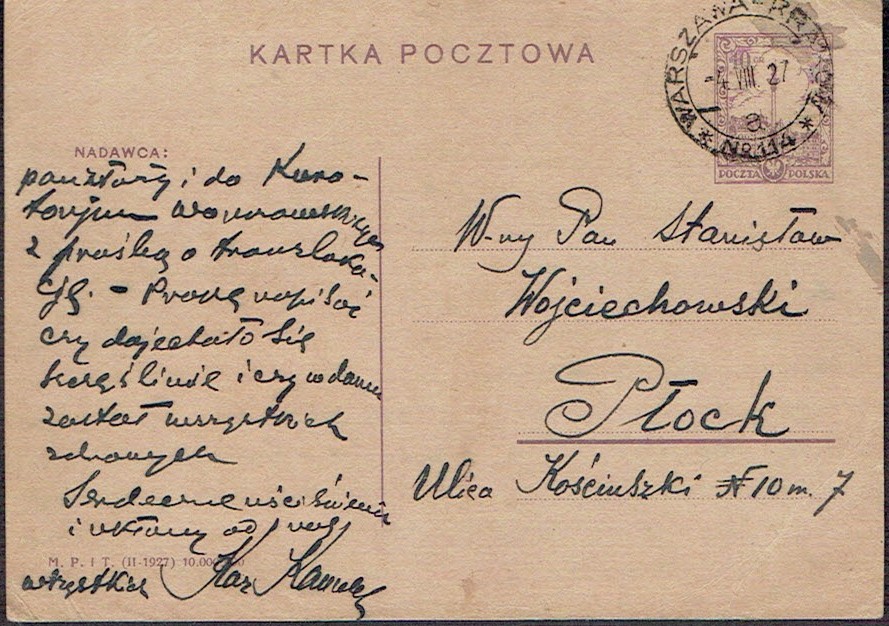 KARTKA POCZTOWA
WARSZAWA
VIII. 27
a
* No 114 *
POCZTA POLSKA
NADAWCA:
i do Kura-
torjum
z prośbą o transloka-
cję. – Proszę napisać
czy dojechało się
szczęśliwie i czy w domu
zastał wszystkich
zdrowych
Serdeczne uściśnienia
i ukłony od nas
wszystkich
M. P. i T. (II-1927) 10.000
W-ny Pan Stanisław
Wojciechowski
Płock
Ulica Kościuszki № 10 m. 7